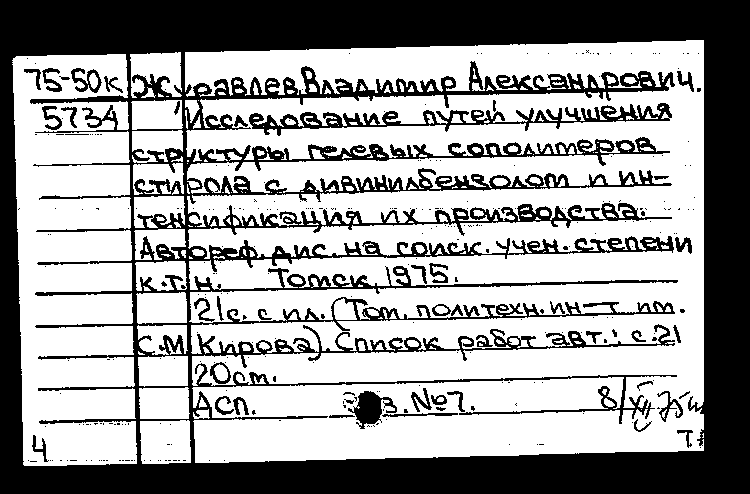 75-50к Журавлев, Владимир Александрович.
5734 Исследование путей улучшения
структуры гелевых сополимеров
стирола с дивинилбензолом и ин-
тенсификация их производства.
Автореф. дис. на соиск. учен. степени
к.т.н. Томск, 1975.
21с. с ил. (Том. политехн. ин-т им.
С.М. Кирова). Список работ авт.: с.21
20cm.
Асп. №7. 8/XII 75
4